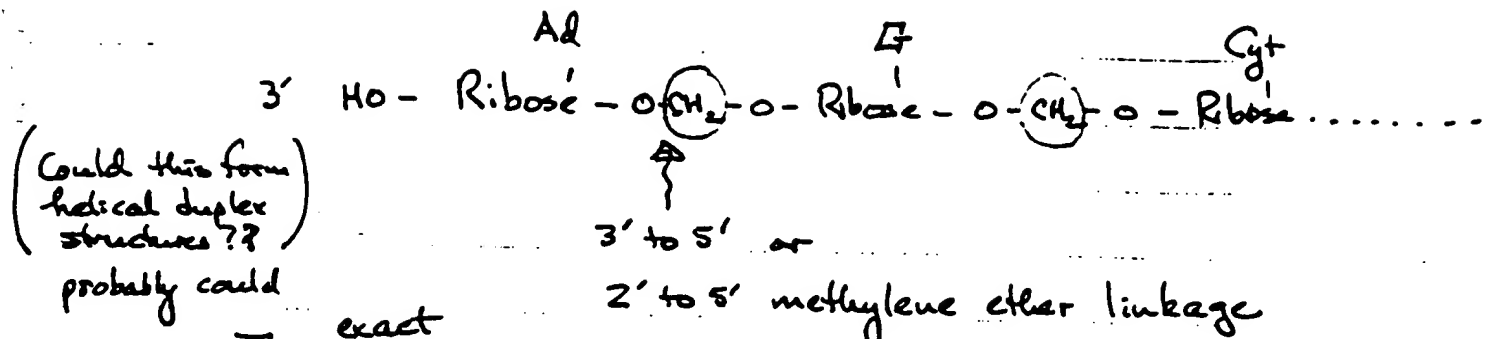 Ad G Cyt
3' HO - Ribose - O-CH2-O- Ribose - O-CH2-O - Ribose ........
(Could this form
helical duplex
structures??)
3' to 5' or
probably could 2' to 5' methylene ether linkage
— exact